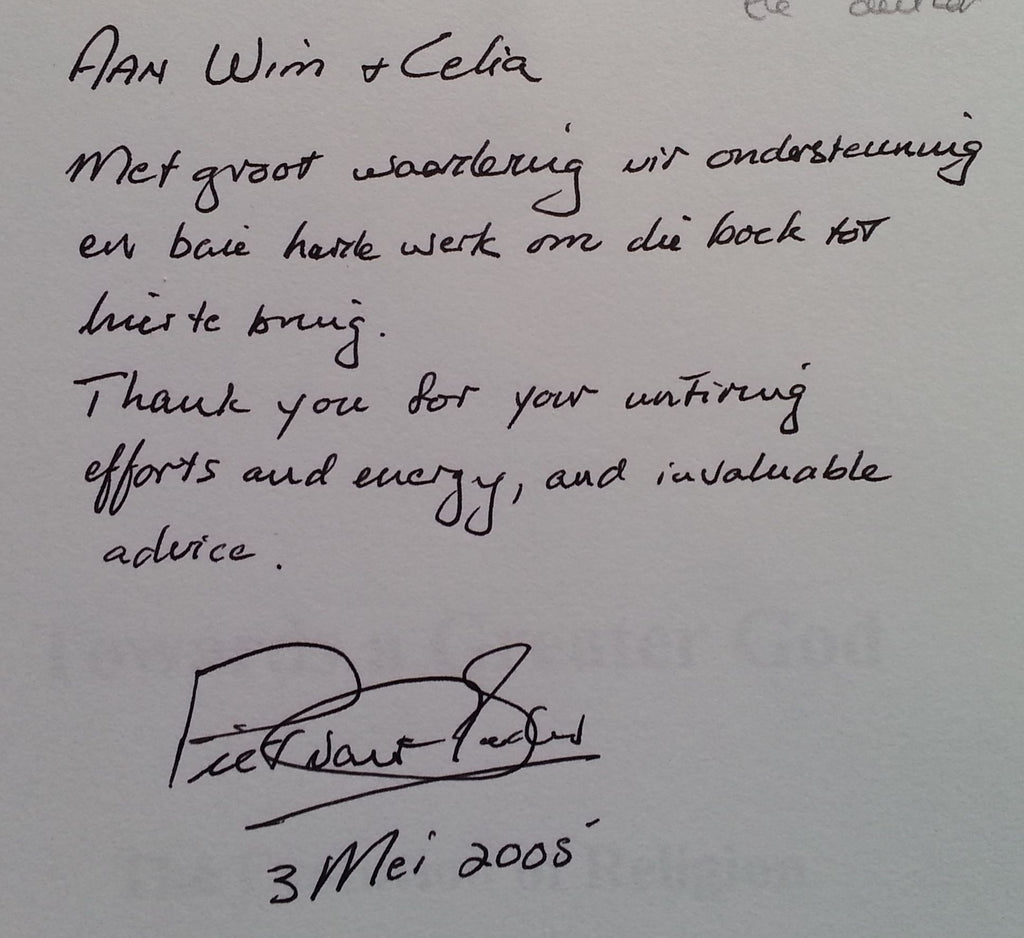 AAN Wim + Celia
Met groot waardering vir ondersteuning
en baie harde werk om die boek tot
hier te bring.
Thank you for your untiring
efforts and energy, and invaluable
advice.
Greater God
Piet
3 Mei 2005
Religion